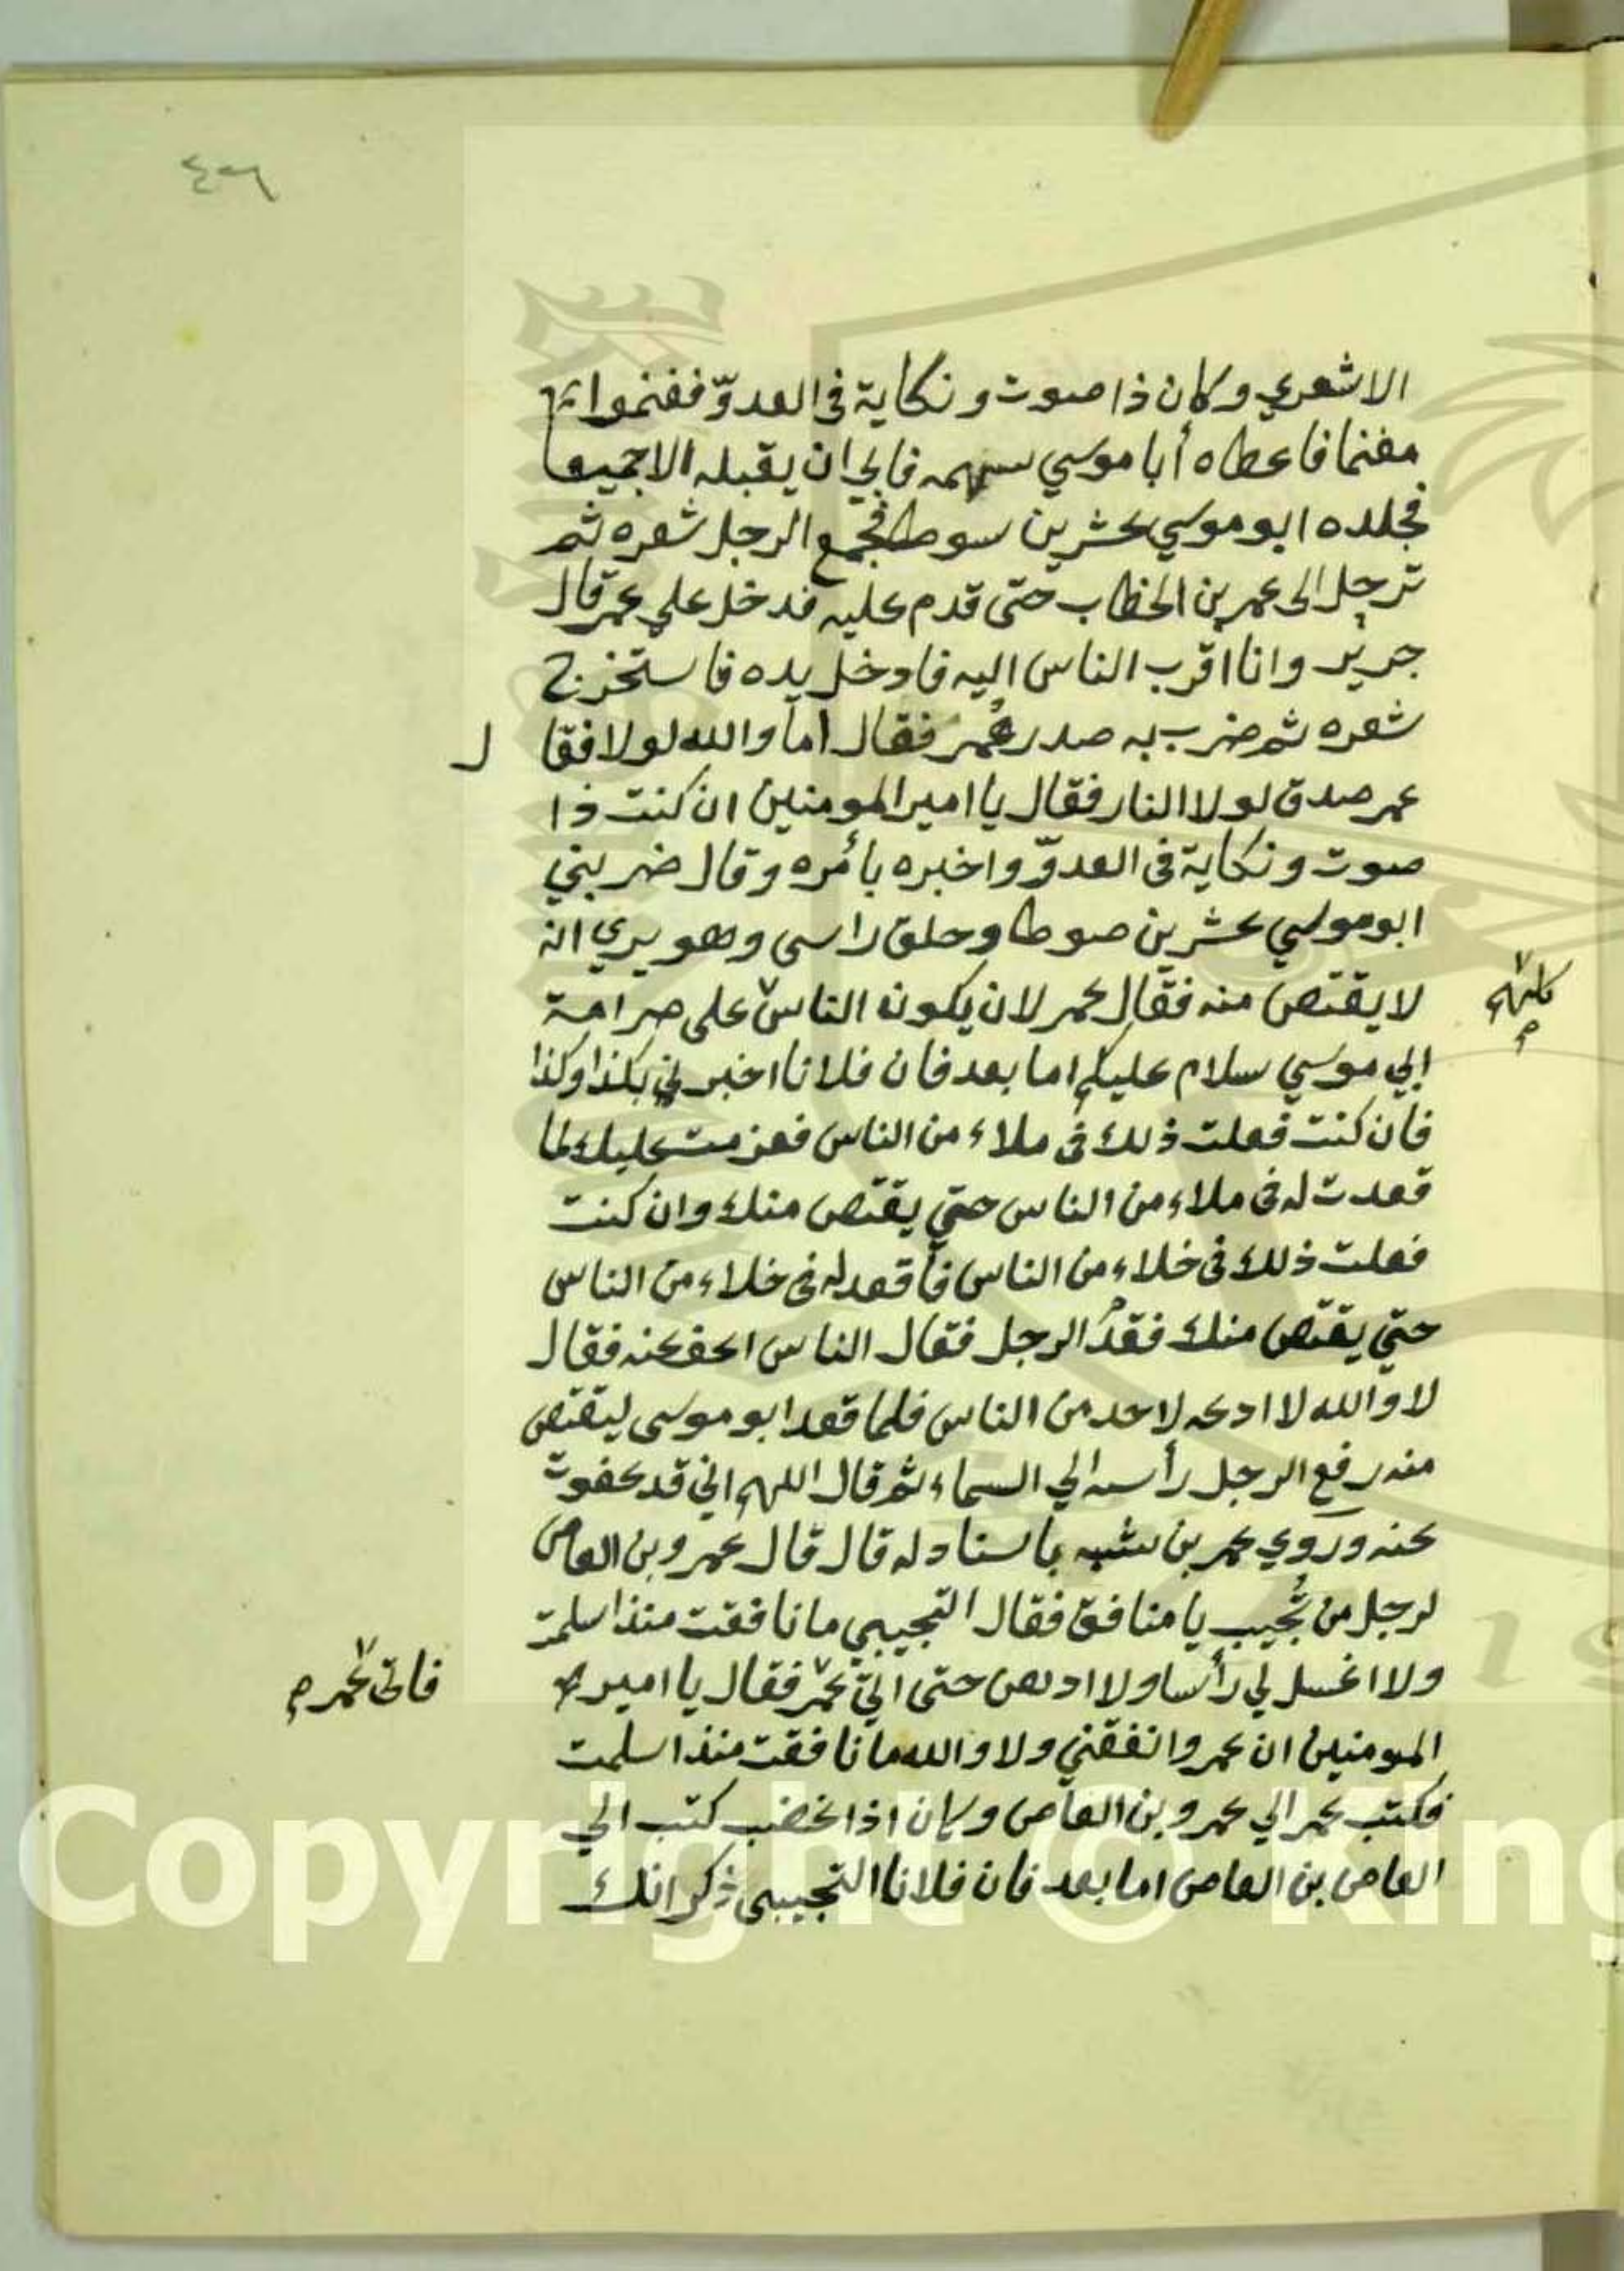 ٤٣٦
الاشعري وكان ذا صوت ونكاية فى العدوّ ففنموا
مغنما فاعطاه أبا موسي سهمه فابي ان يقبله الاجميعا
فجلده ابوموسي عشرين سوطا فجمع الرجل شعره ثم
ترجل الى عمر بن الخطاب حتى قدم عليه فدخل علي عمر قال
جرير وانا اقرب الناس اليه فادخل يده فاستخرج
شعره ثم ضرب به صدر عُمر فقال أما والله لولا فقا ل
عمر صدق لولا النار فقال يا امير المومنين ان كنت ذا
صوت ونكاية فى العدوّ واخبره بأمره وقال ضربني
ابوموسي عشرين صوطا وحلق راسى وهو يري انه
لا يقتص منه فقال عمر لان يكون الناس على صرامة
كلهم
ابي موسي سلام عليكم اما بعد فان فلانا اخبرني بكذا وكذا
فان كنت فعلت ذلك فى ملاء من الناس فعزمت عليك لما
قعدت له فى ملاء من الناس حتي يقتص منك وان كنت
فعلت ذلك فى خلاء من الناس فأقعد له فى خلاء من الناس
حتي يقتص منك فقدم الرجل فقال الناس اعف عنه فقال
لا والله لا ادعه لاحد من الناس فلما قعد ابو موسى ليقتص
منه رفع الرجل رأسه الي السماء ثم قال اللهم اني قد عفوت
عنه وروي عمر بن شبه باسناد له قال قال عمرو بن العاص
لرجل من تُجيب يا منافق فقال التجيبي ما نافقت منذ اسلمت
ولا اغسل لي رأسا ولا ادهن حتى اتي عمر فقال يا امير
فاتى عمر
المومنين ان عمروا نفقني ولا والله ما نافقت منذ اسلمت
فكتب عمر الي عمرو بن العاص وكان اذا غضب كتب الي
العاص بن العاص اما بعد فان فلانا التجيبى ذكر انك
Copyright © King
19